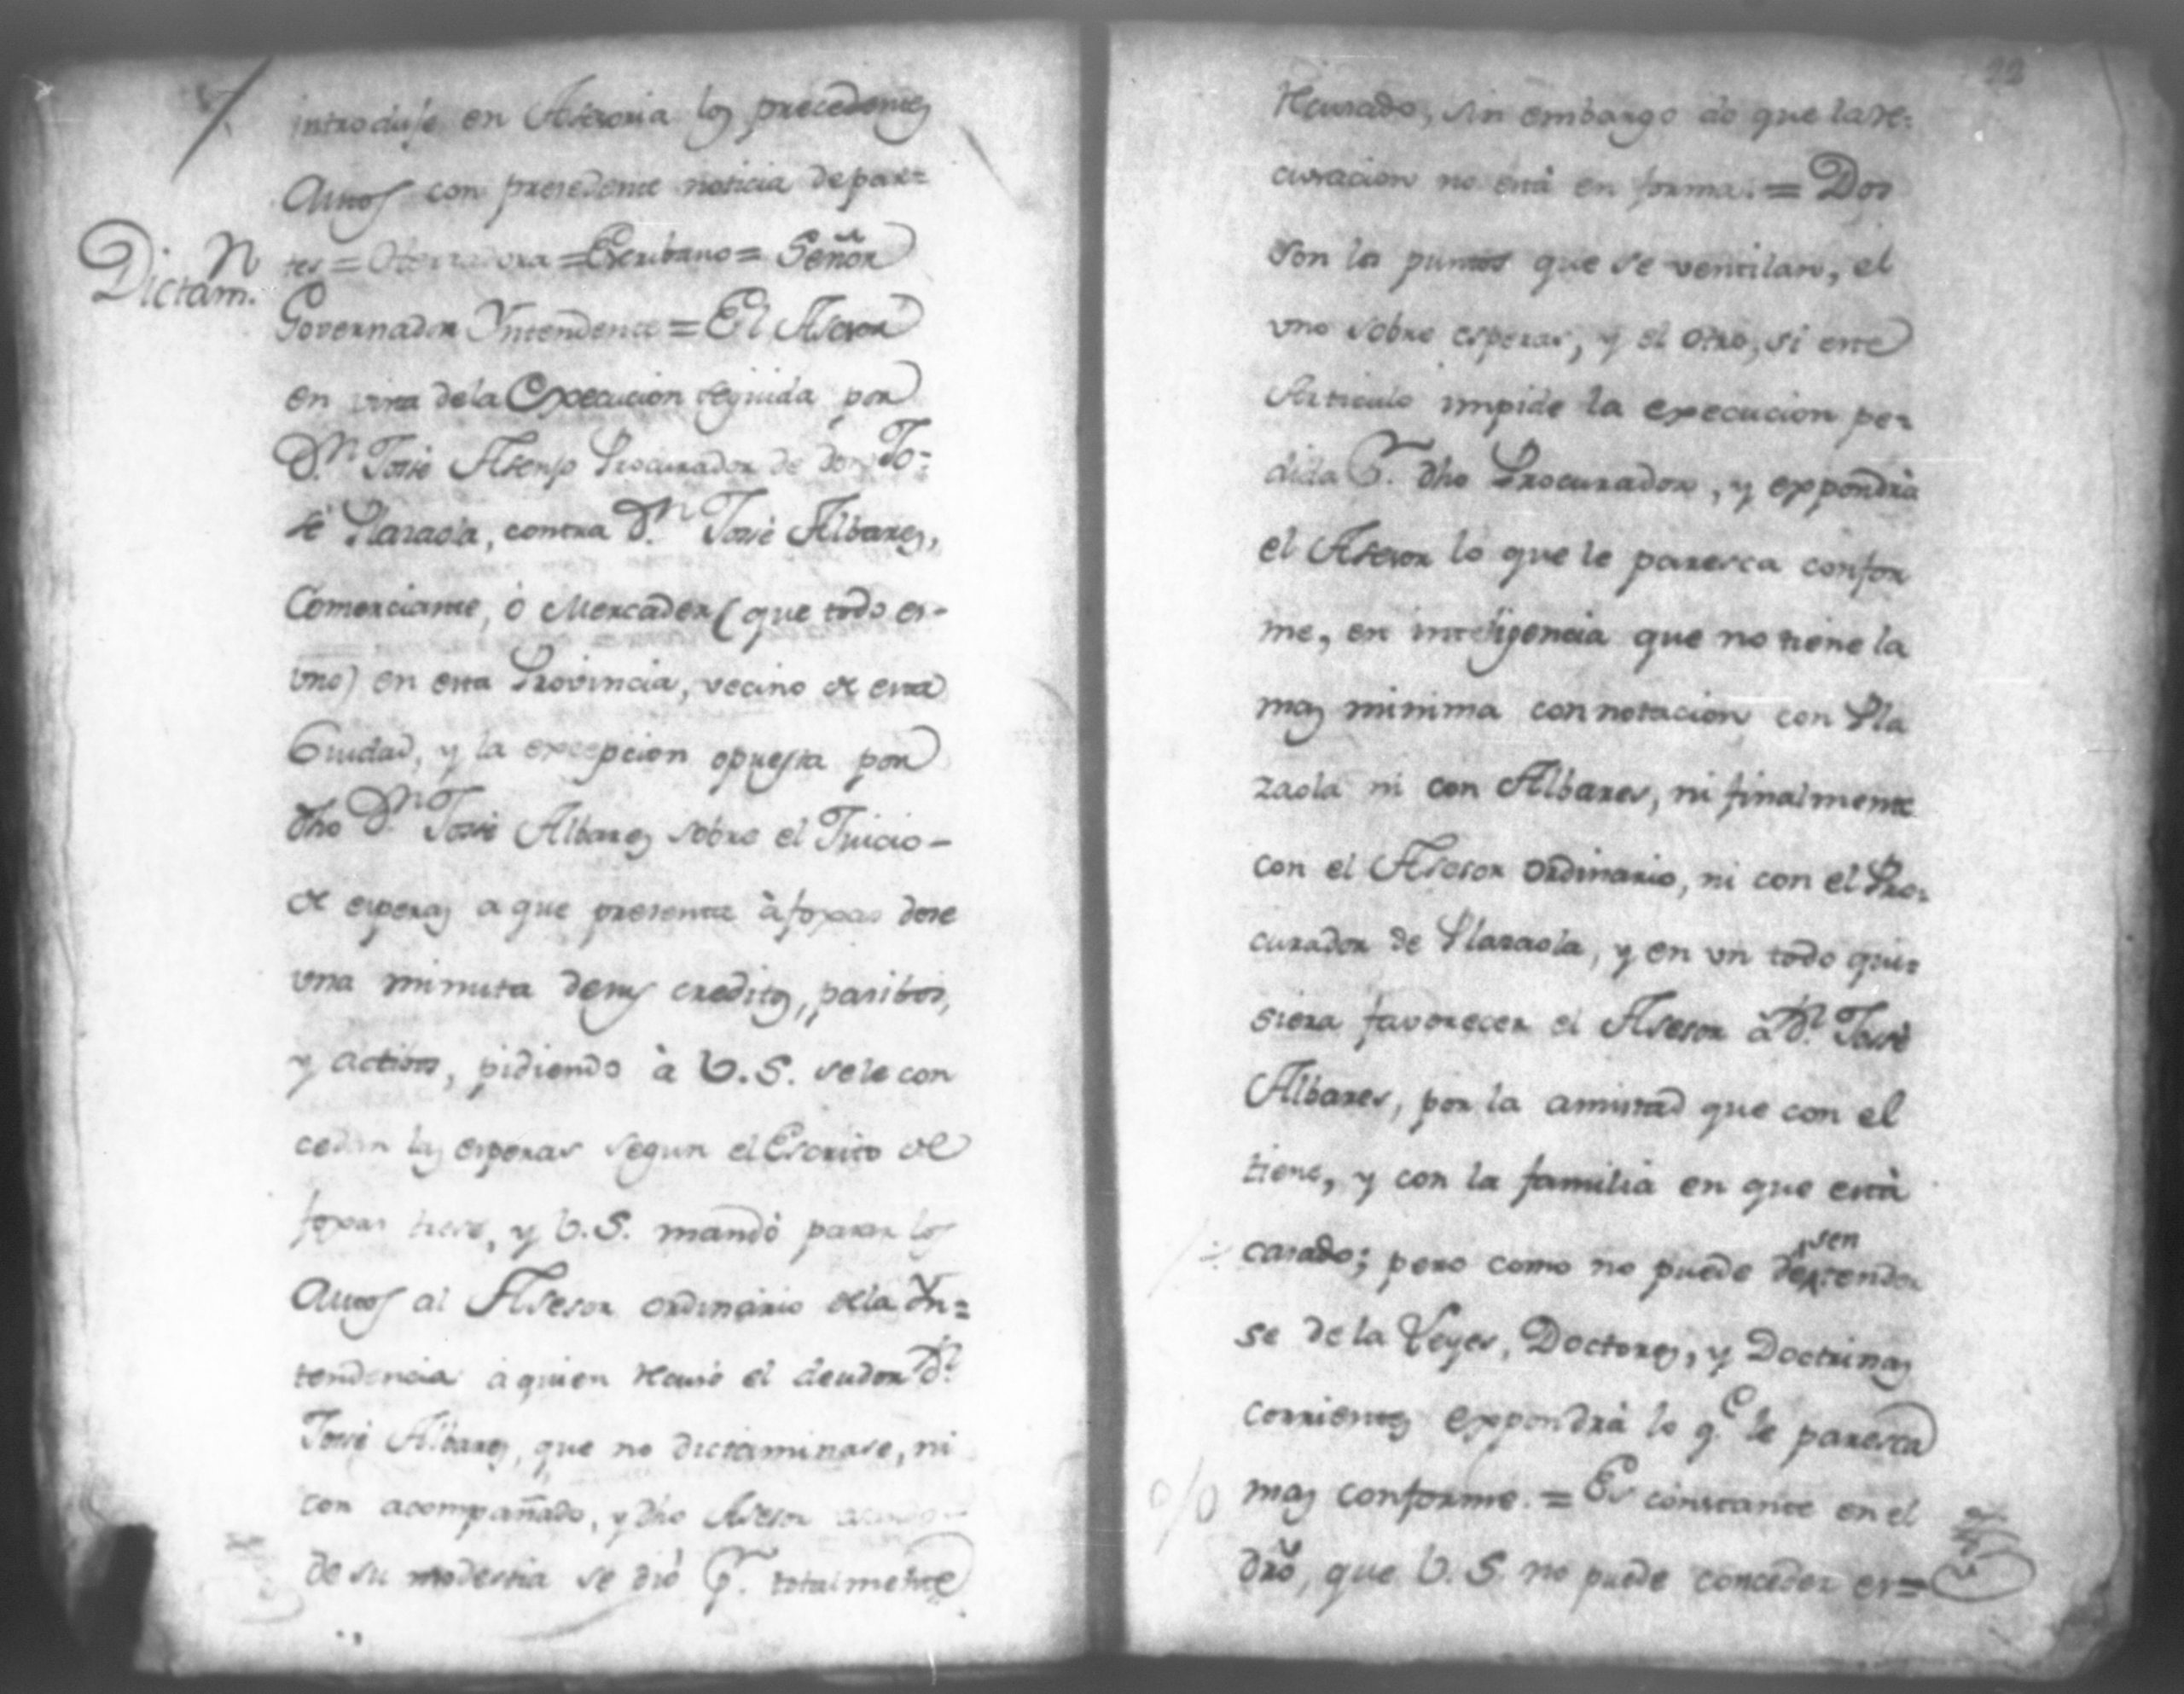 introduje en Asesoria los precedentes
Autos con precedente noticia de par=
tes = = Escribano = Señor
Dictam.n
Governador Yntendente = El Asesor
en vista de la Execucion seguida por
D.n José Asenjo Procurador de don Jo=
sé Plazaola, contra D.n José Albares,
Comerciante, ó Mercader (que todo es
uno) en esta Provincia, vecino de esta
Ciudad, y la excepcion opuesta por
dho D.n José Albares sobre el Juicio
de esperas a que presenta à foxas dose
una minuta de sus creditos, pasibos,
y actibos, pidiendo à V.S. se le con
cedan las esperas segun el Escrito de
foxas trese, y V.S. mandó pasar los
Autos al Asesor ordinario de la Yn=
tendencia à quien recusó el deudor D.n
José Albares, que no dictaminase, ni
con acompañado, y dho Asesor
de su modestia se dió p.r totalmente
22
recusado, sin embargo de que la re=
cusacion no està en forma. = Dos
son los puntos que se ventilan, el
uno sobre esperas, y el otro, si este
Articulo impide la execucion pe=
dida p.r dho Procurador, y expondrà
el Asesor lo que le paresca confor
me, en inteligencia que no tiene la
mas minima connotacion con Pla
zaola ni con Albares, ni finalmente
con el Asesor ordinario, ni con el Pro=
curador de Plazaola, y en un todo qui=
siera favorecer el Asesor à D.n José
Albares, por la amistad que con el
tiene, y con la familia en que està
casado; pero como no puede desentender
se de la Leyes, Doctores, y Doctrinas
corrientes expondrà lo q.e le paresca
mas conforme. = Es constante en el
dro, que V.S. no puede conceder es=